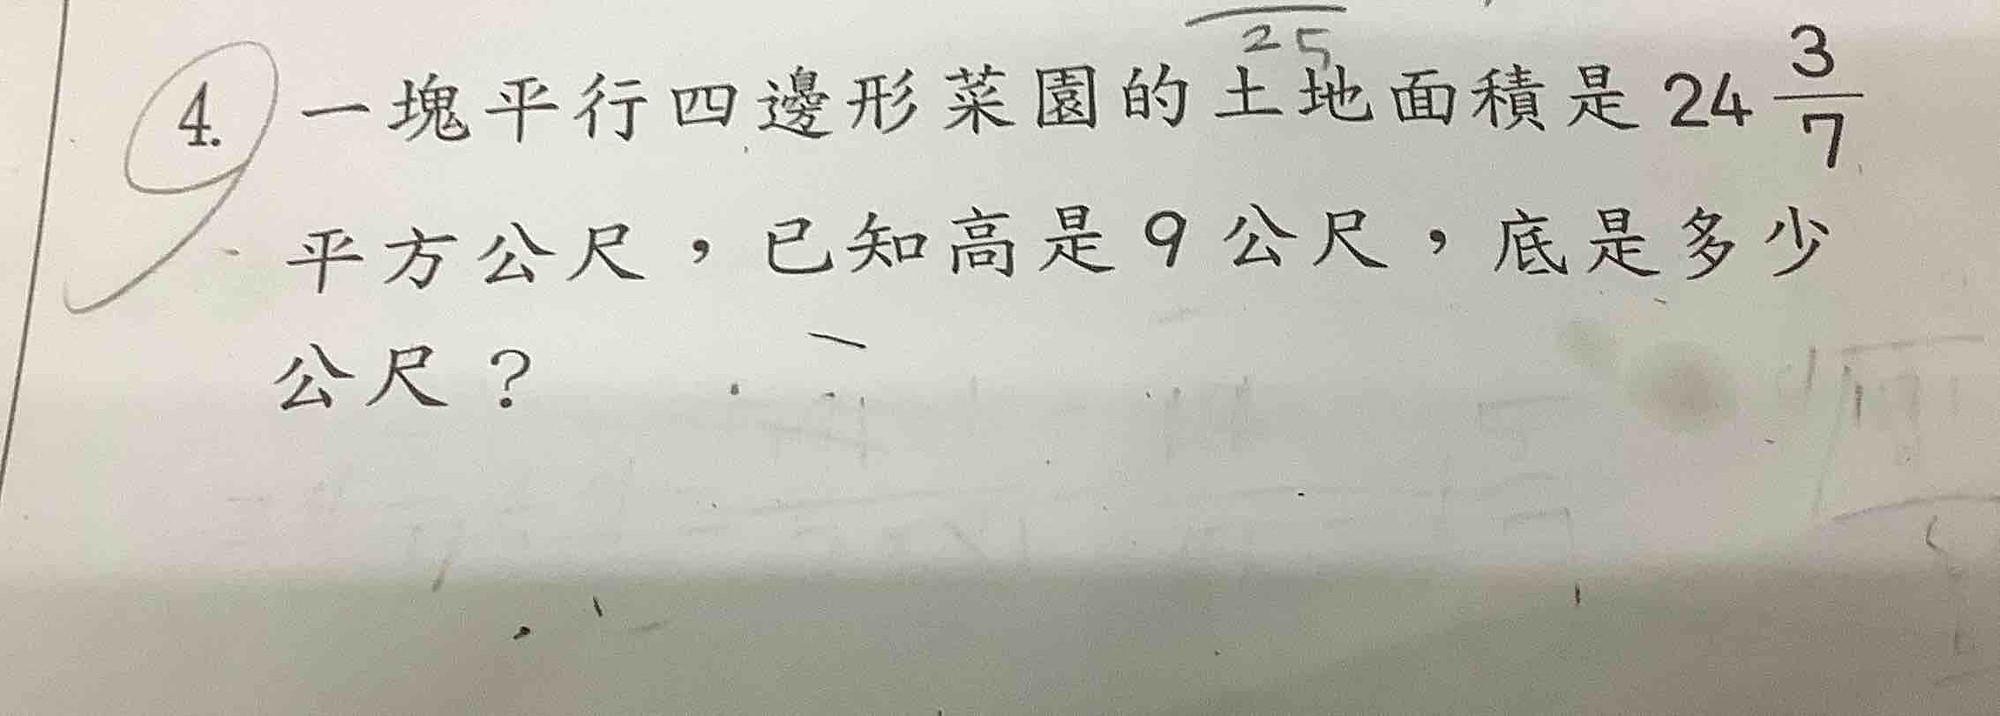 25
4. 一塊平行四邊形菜園的土地面積是 24 3/7
平方公尺，已知高是 9 公尺，底是多少
公尺？